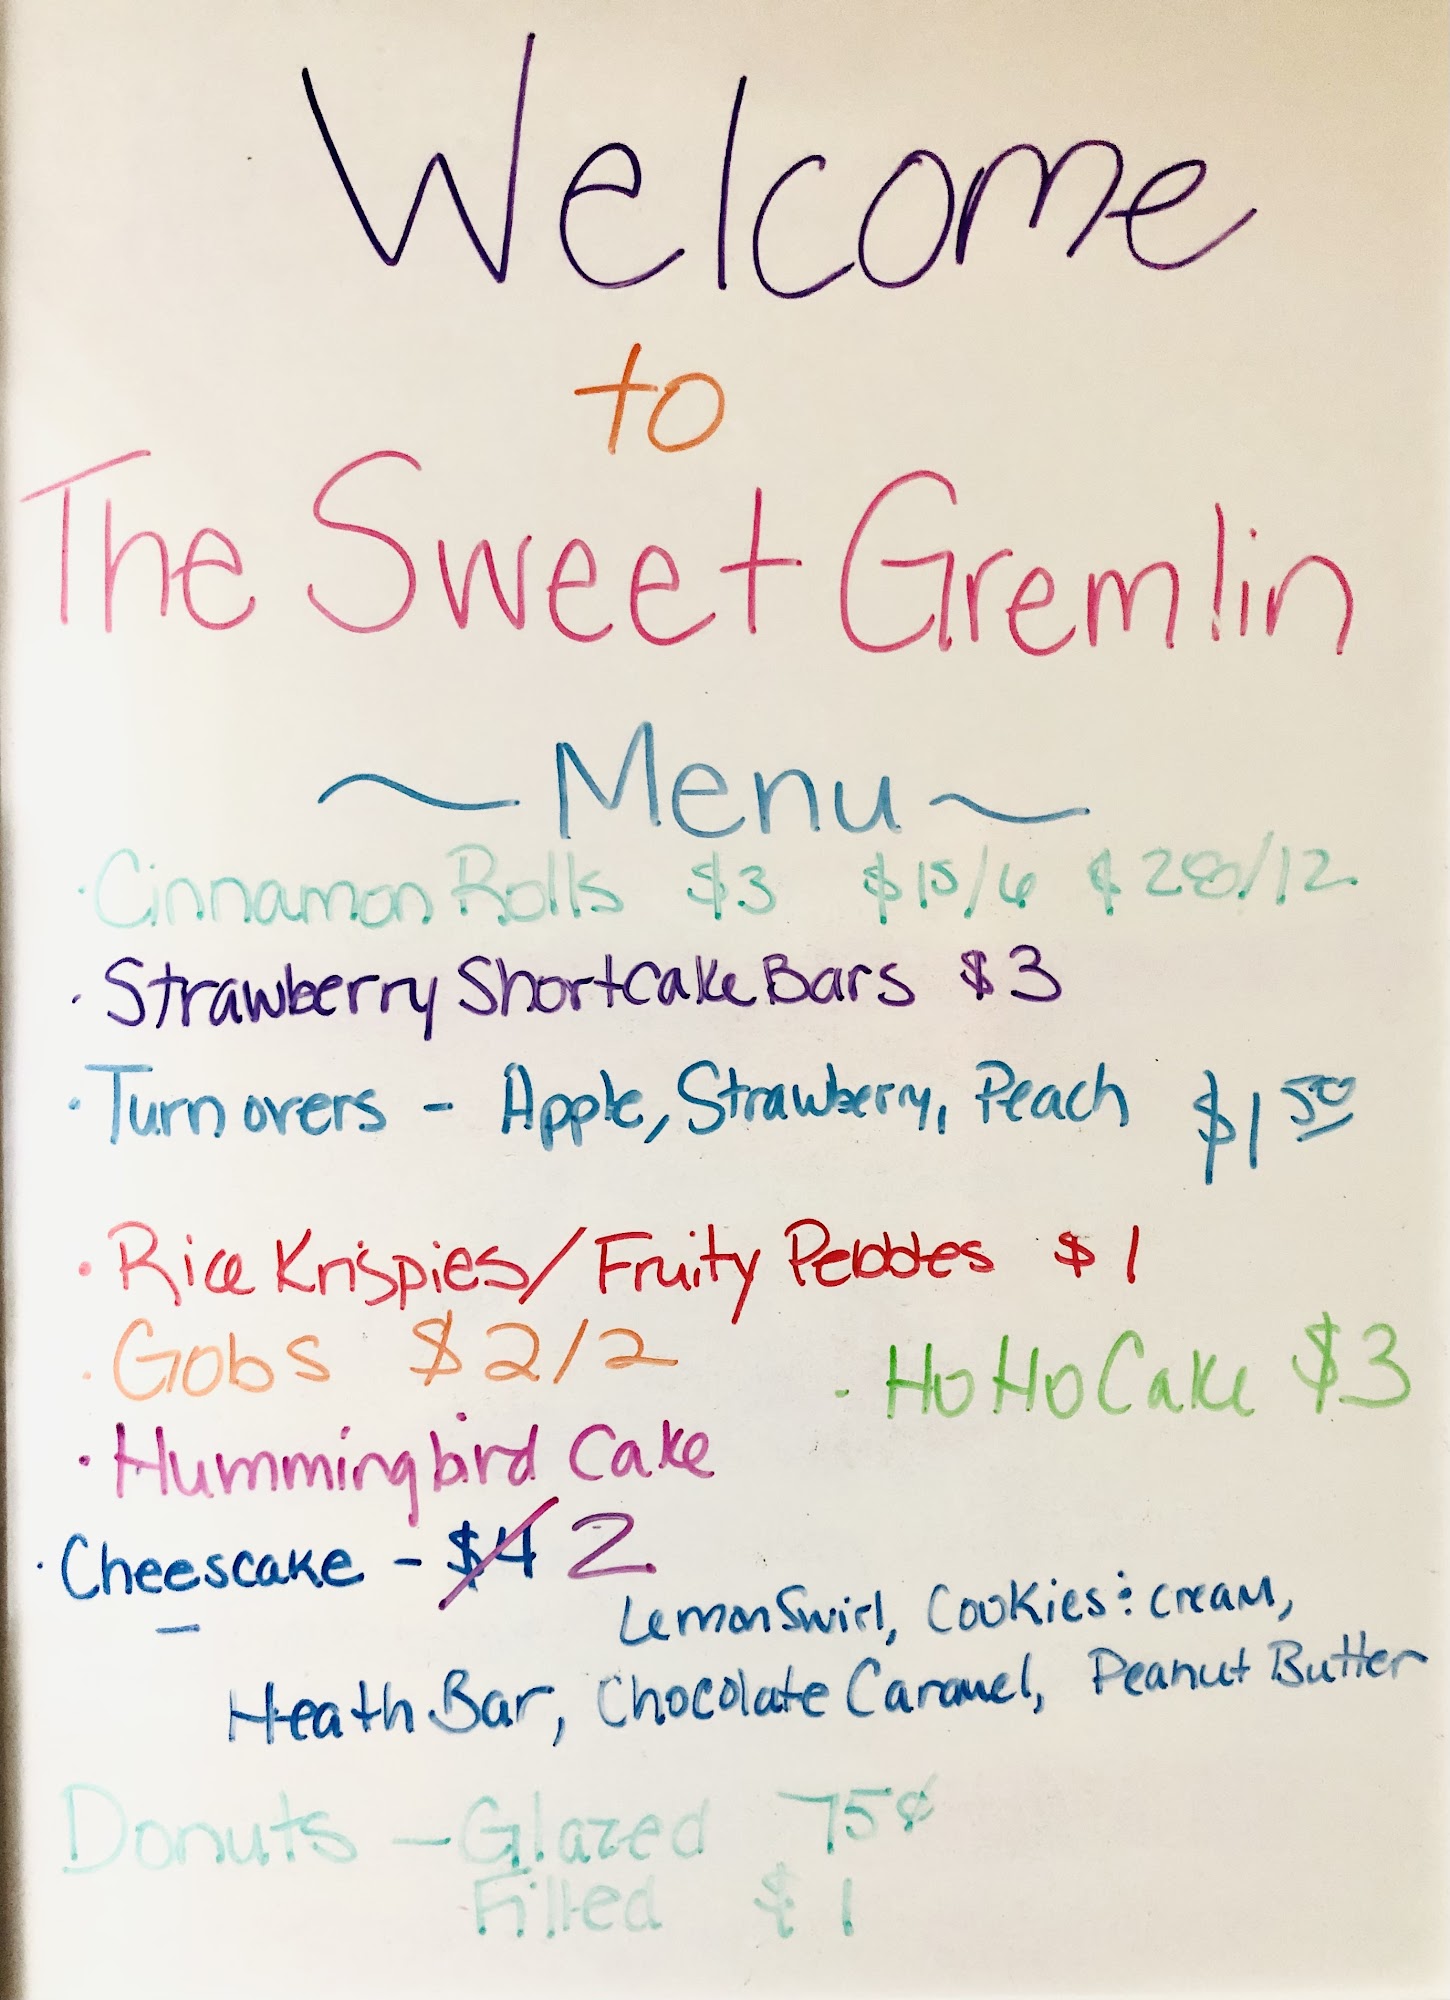 Welcome
to
The Sweet Gremlin
~ Menu ~
· Cinnamon Rolls $3 $15/6 $28/12
· Strawberry Shortcake Bars $3
· Turnovers - Apple, Strawberry, Peach $1 50
· Rice Krispies/Fruity Pebbles $1
· Gobs $2/2
· HoHo Cake $3
· Hummingbird Cake
· Cheescake - $4 2
Lemon Swirl, Cookies & cream,
Heath Bar, Chocolate Caramel, Peanut Butter
Donuts - Glazed 75¢
Filled $1